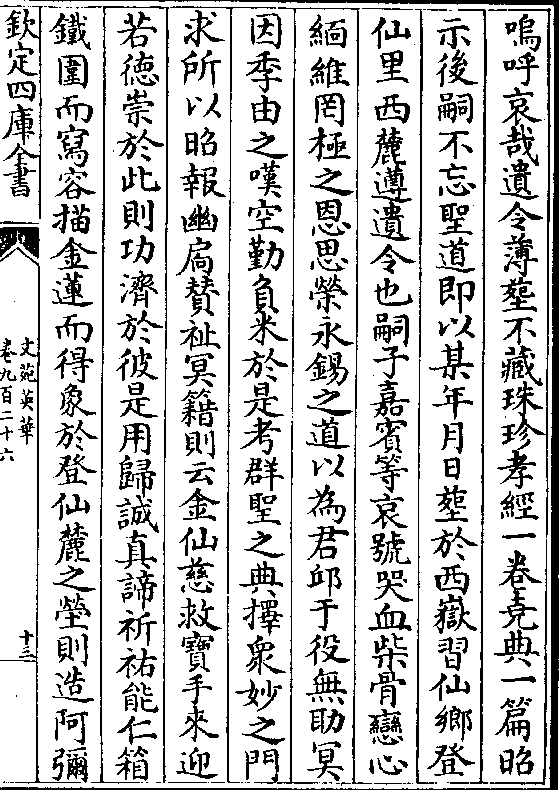 嗚呼哀哉遺令薄塟不藏珠珍孝經一卷堯典一篇昭
示後嗣不忘聖道即以某年月日塟於西嶽習仙鄉登
仙里西麓遵遺令也嗣子嘉賓等哀號哭血柴骨戀心
緬維罔極之恩思榮永錫之道以為君邱于役無助冥
因季由之嘆空勤負米於是考群聖之典擇衆妙之門
求所以昭報幽扄賛祉冥籍則云金仙慈救寶手來迎
若徳崇於此則功濟於彼是用歸誠真諦祈祐能仁箱
鐵圍而寫容描金蓮而得象於登仙麓之塋則造阿彌
欽定四庫全書
文苑英華
卷九百二十六
十三